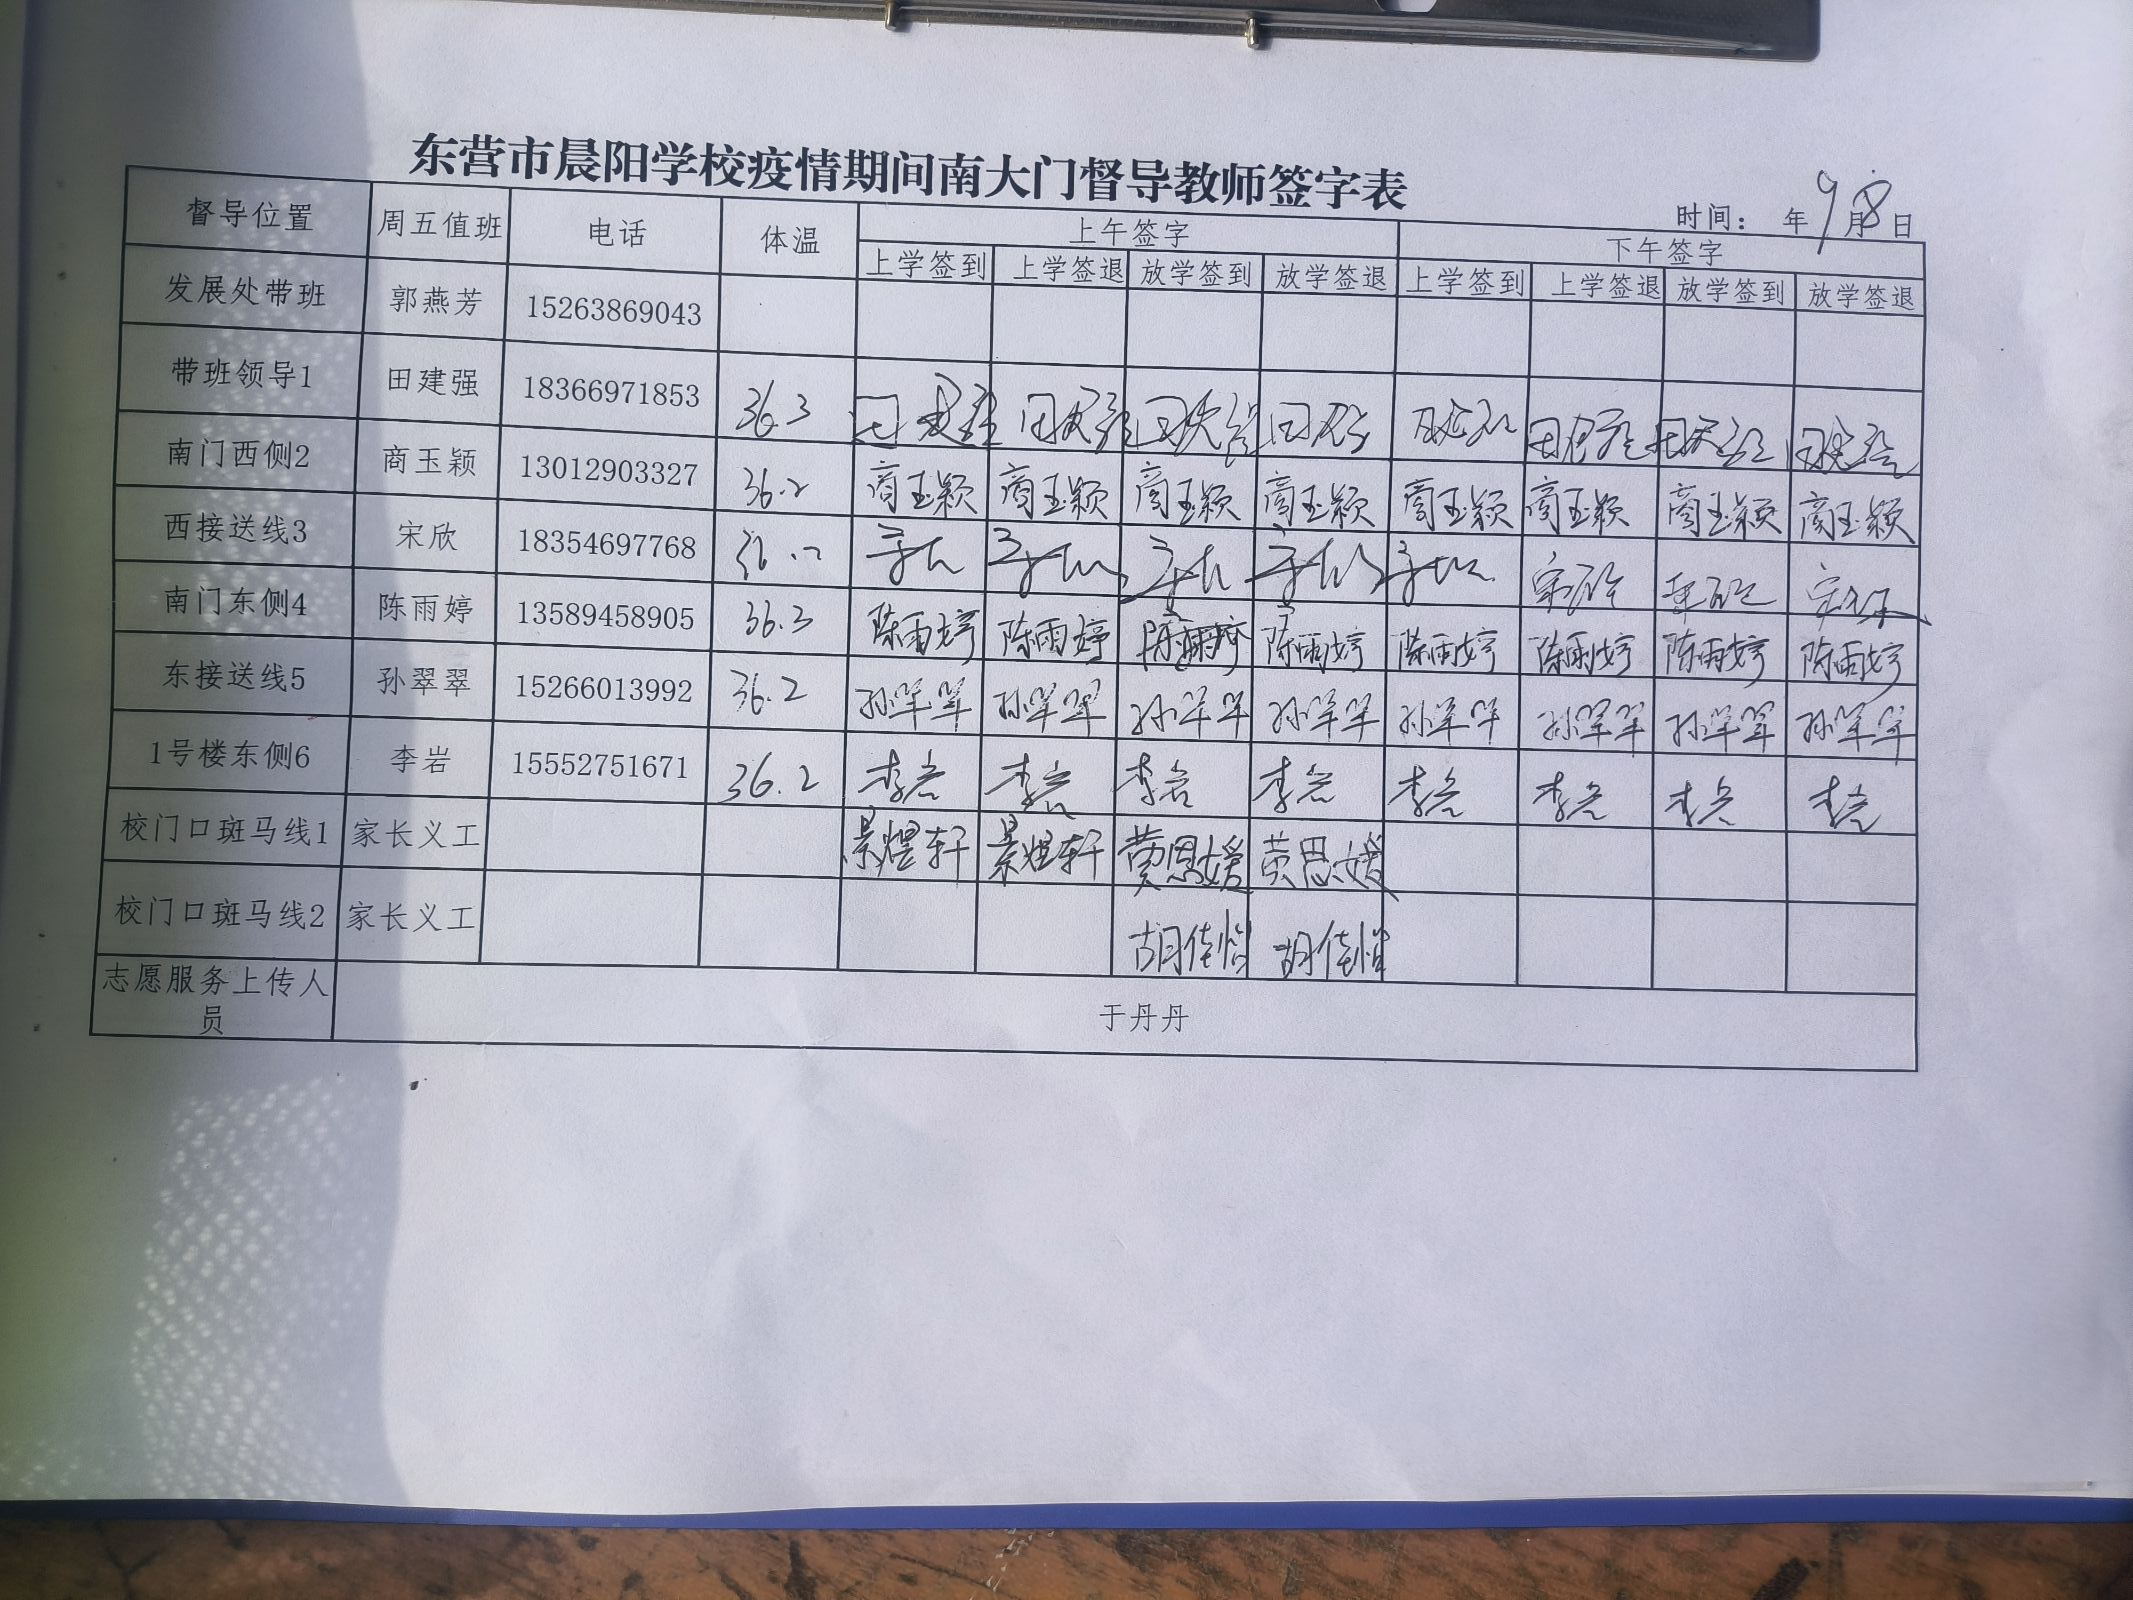 东营市晨阳学校疫情期间南大门督导教师签字表
时间： 年9月8日
督导位置 周五值班 电话 体温 上午签字 下午签字
上学签到 上学签退 放学签到 放学签退 上学签到 上学签退 放学签到 放学签退
发展处带班 郭燕芳 15263869043
带班领导1 田建强 18366971853 36.3 田建强 田建强 田建强 田建强 田建强 田建强 田建强 田建强
南门西侧2 商玉颖 13012903327 36.2 商玉颖 商玉颖 商玉颖 商玉颖 商玉颖 商玉颖 商玉颖 商玉颖
西接送线3 宋欣 18354697768 宋欣 宋欣 宋欣 宋欣 宋欣 宋欣 宋欣 宋欣
南门东侧4 陈雨婷 13589458905 36.3 陈雨婷 陈雨婷 陈雨婷 陈雨婷 陈雨婷 陈雨婷 陈雨婷 陈雨婷
东接送线5 孙翠翠 15266013992 36.2 孙翠翠 孙翠翠 孙翠翠 孙翠翠 孙翠翠 孙翠翠 孙翠翠 孙翠翠
1号楼东侧6 李岩 15552751671 36.2 李岩 李岩 李岩 李岩 李岩 李岩 李岩 李岩
校门口斑马线1 家长义工 景煜轩 景煜轩 黄思媛 黄思媛
校门口斑马线2 家长义工 胡佳怡 胡佳怡
志愿服务上传人员 于丹丹